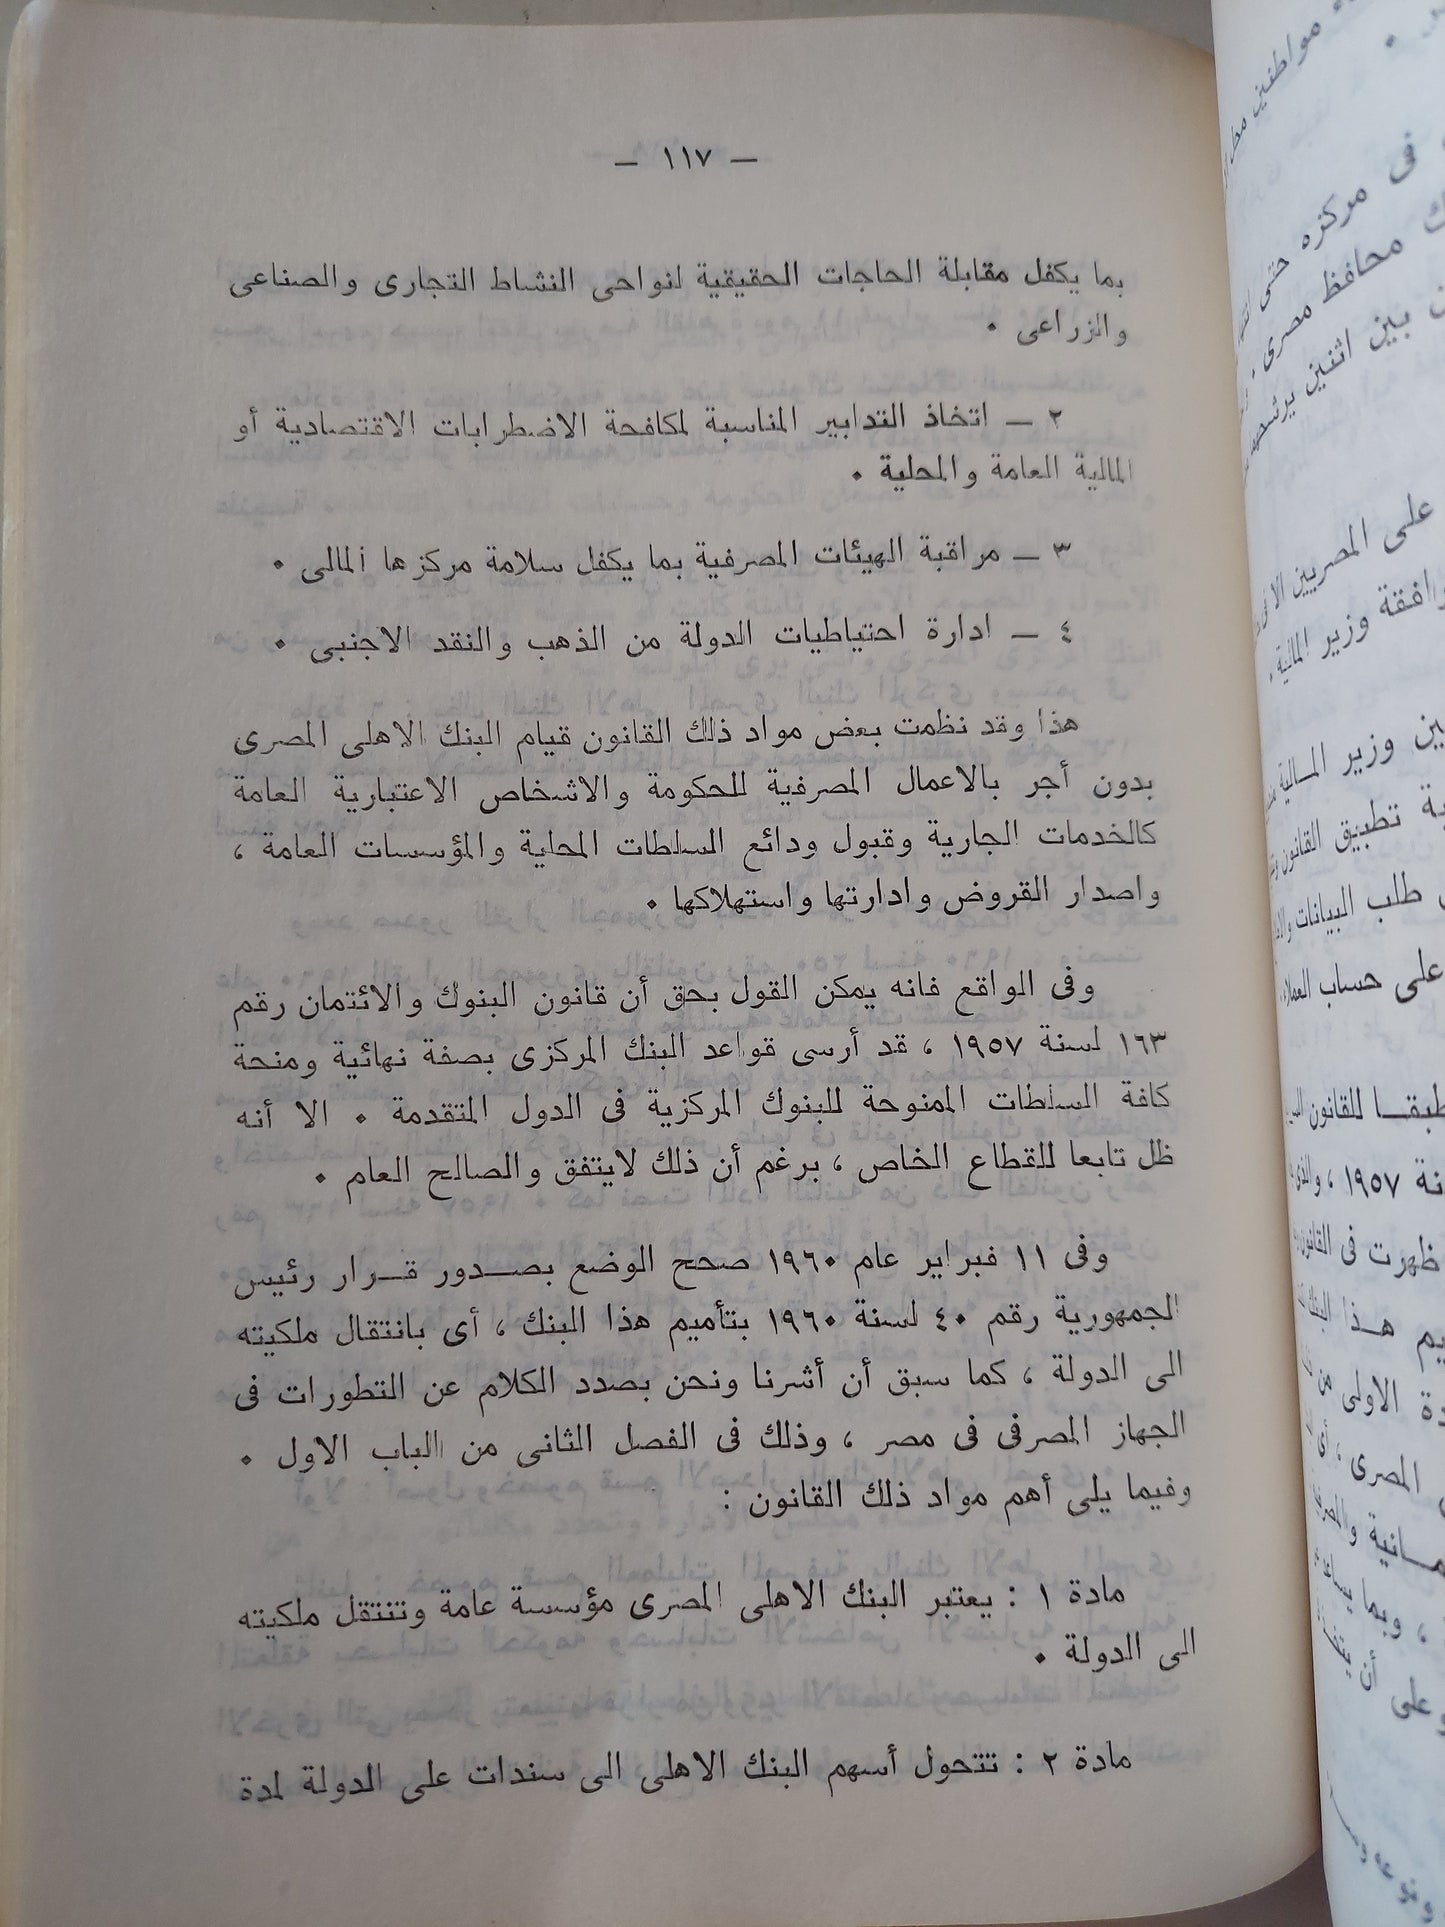 — ١١٧ —
بما يكفل مقابلة الحاجات الحقيقية لنواحى النشاط التجارى والصناعى
والزراعى ٠
٢ — اتخاذ التدابير المناسبة لمكافحة الاضطرابات الاقتصادية أو
المالية العامة والمحلية ٠
٣ — مراقبة الهيئات المصرفية بما يكفل سلامة مركزها المالى ٠
٤ — ادارة احتياطيات الدولة من الذهب والنقد الاجنبى ٠
هذا وقد نظمت بعض مواد ذلك القانون قيام البنك الاهلى المصرى
بدون أجر بالاعمال المصرفية للحكومة والاشخاص الاعتبارية العامة
كالخدمات الجارية وقبول ودائع السلطات المحلية والمؤسسات العامة ،
واصدار القروض وادارتها واستهلاكها ٠
وفى الواقع فانه يمكن القول بحق أن قانون البنوك والائتمان رقم
١٦٣ لسنة ١٩٥٧ ، قد أرسى قواعد البنك المركزى بصفة نهائية ومنحة
كافة السلطات الممنوحة للبنوك المركزية فى الدول المتقدمة ٠ الا أنه
ظل تابعا للقطاع الخاص ، برغم أن ذلك لايتفق والصالح العام ٠
وفى ١١ فبراير عام ١٩٦٠ صحح الوضع بصـــدور قـــرار رئيس
الجمهورية رقم ٤٠ لسنة ١٩٦٠ بتأميم هذا البنك ، أى بانتقال ملكيته
الى الدولة ، كما سبق أن أشرنا ونحن بصدد الكلام عن التطورات فى
الجهاز المصرفى فى مصر ، وذلك فى الفصل الثانى من الباب الاول ٠
وفيما يلى أهم مواد ذلك القانون :
مادة ١ : يعتبر البنك الاهلى المصرى مؤسسة عامة وتنتقل ملكيته
الى الدولة ٠
مادة ٢ : تتحول أسهم البنك الاهلى الى سندات على الدولة لمدة
مواطنين
فى مركزه حتى
محافظ مصرى ٠
بين اثنين
على المصريين
وزير المالية ٠
وزير المـالية
تطبيق القانون
طلب البيانات
على حساب العملاء
طبقـــا للقانون
١٩٥٧ ،
ظهرت فى القانون
هـذا البنك
الاولى من
المصرى ، أى
، وبما
وعلى أن